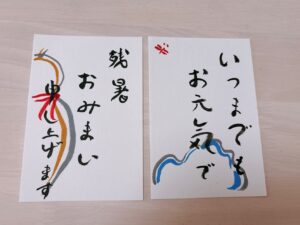 いつまでも
お元気で
残暑
おみまい
申し上げます